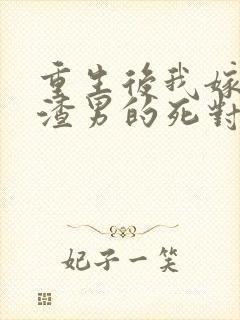 重生後我嫁
渣男的死對
妃子一笑